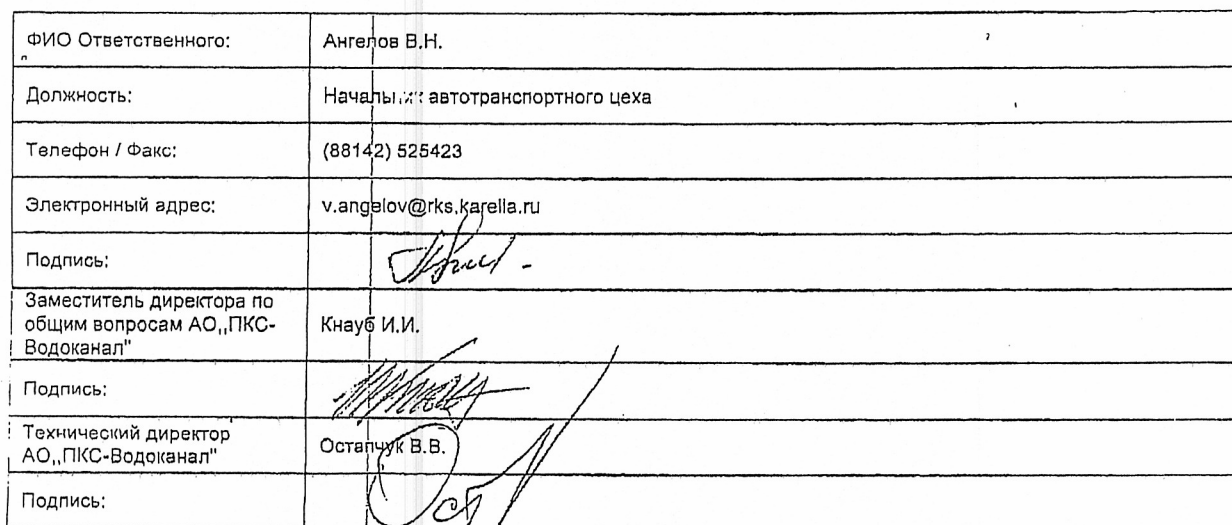 ФИО Ответственного: Ангелов В.Н.
Должность: Начальник автотранспортного цеха
Телефон / Факс: (88142) 525423
Электронный адрес: v.angelov@rks.karelia.ru
Подпись:
Заместитель директора по
общим вопросам АО„ПКС-
Водоканал" Кнауб И.И.
Подпись:
Технический директор
АО„ПКС-Водоканал" Остапчук В.В.
Подпись: